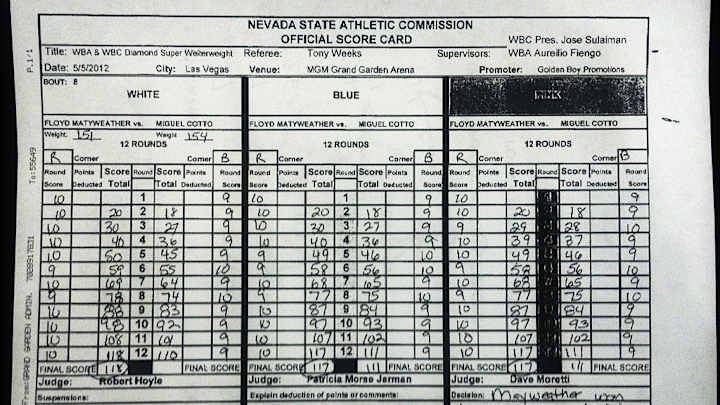 NEVADA STATE ATHLETIC COMMISSION
OFFICIAL SCORE CARD
WBC Pres. Jose Sulaiman
Title: WBA & WBC Diamond Super Welterweight Referee: Tony Weeks Supervisors: WBA Aurelio Fiengo
Date: 5/5/2012 City: Las Vegas Venue: MGM Grand Garden Arena Promoter: Golden Boy Promotions
BOUT: 8
WHITE BLUE PINK
FLOYD MATYWEATHER vs. MIGUEL COTTO FLOYD MATYWEATHER vs. MIGUEL COTTO FLOYD MATYWEATHER vs. MIGUEL COTTO
Weight: 151 Weight 154
12 ROUNDS 12 ROUNDS 12 ROUNDS
R Corner Corner B R Corner Corner B R Corner Corner B
Round Points Score Round Score Points Round Round Points Score Round Score Points Round Round Points Score Round Score Points Round
Score Deducted Total Total Deducted Score Score Deducted Total Total Deducted Score Score Deducted Total Total Deducted Score
10 1 9 10 1 9 10 9
10 20 2 18 9 10 20 2 18 9 10 20 18 9
10 30 3 27 9 10 30 3 27 9 9 29 28 10
10 40 4 36 9 10 40 4 36 9 10 39 37 9
10 50 5 45 9 9 49 5 46 10 10 49 46 9
9 59 6 55 10 9 58 6 56 10 9 58 56 10
10 69 7 64 9 10 68 7 65 9 10 68 65 9
9 78 8 74 10 9 77 8 75 10 9 77 75 10
10 88 9 83 9 10 87 9 84 9 10 87 84 9
10 98 10 92 9 10 97 10 93 9 10 97 93 9
10 108 11 101 9 10 107 11 102 9 10 107 102 9
10 118 12 110 9 10 117 12 111 9 10 117 111 9
FINAL SCORE 118 FINAL SCORE FINAL SCORE 117 FINAL SCORE FINAL SCORE 117 FINAL SCORE
Judge: Robert Hoyle Judge: Patricia Morse Jarman Judge: Dave Moretti
Suspensions: Explain deduction of points or comments: Decision: Mayweather won
P.1/1
To:55649
7028917831
From:GRAND GARDEN ADMIN.